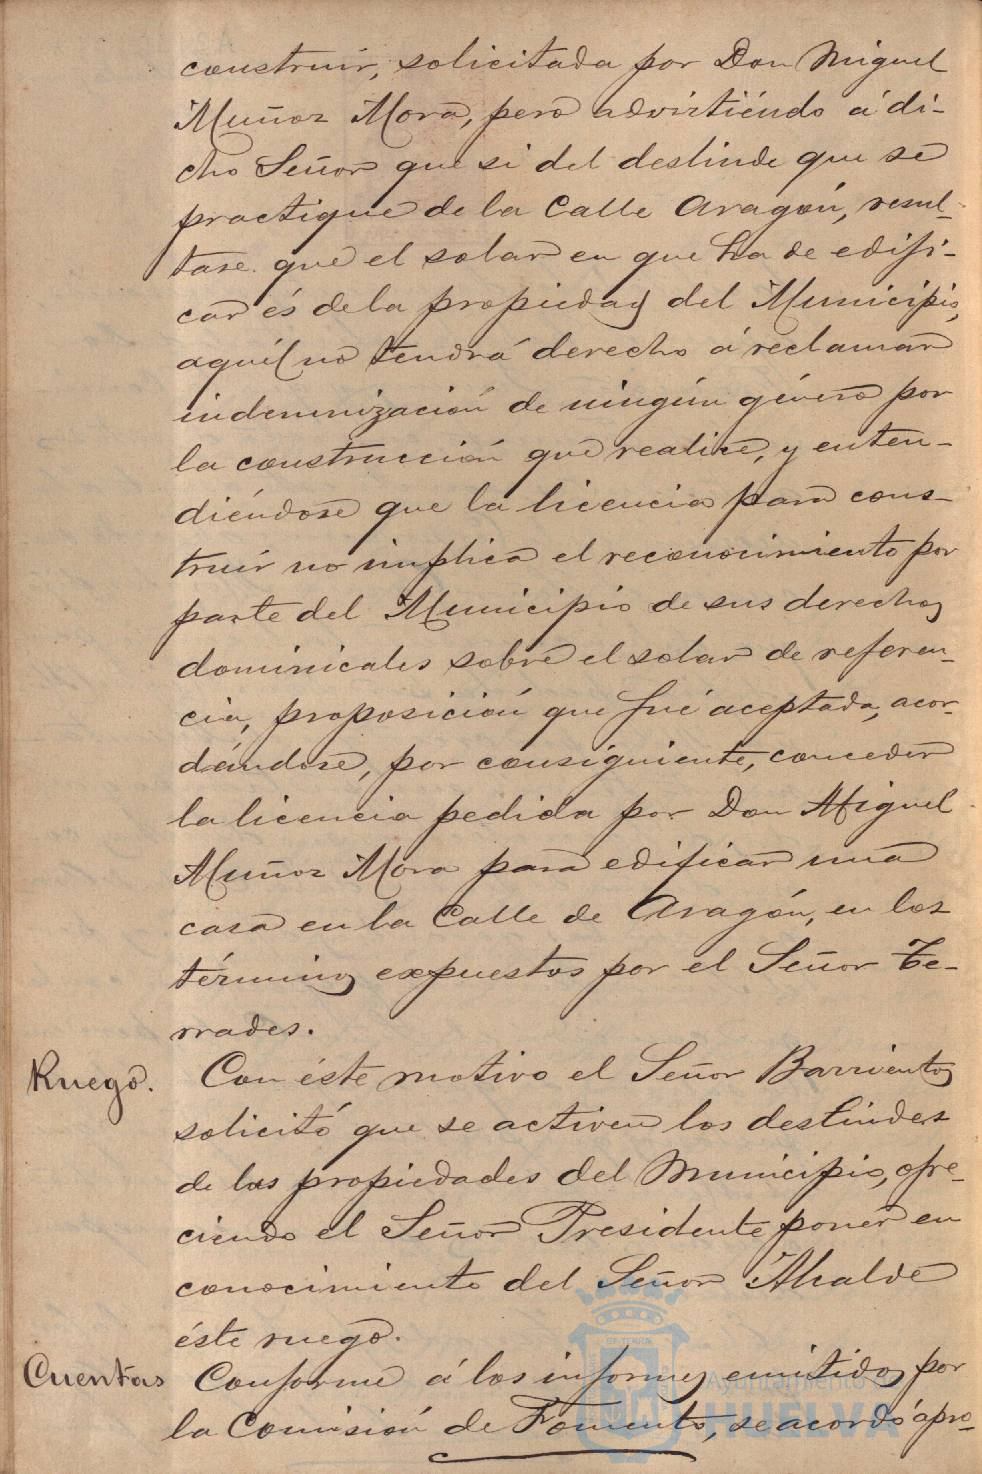 construir, solicitada por Don Miguel
Muñoz Mora, pero advirtiéndo á di-
cho Señor que si del deslinde que se
practique de la Calle Aragón, resul-
tase que el solar en que ha de edifi-
car és de la propiedad del Municipio,
aquél no tendrá derecho á reclamar
indemnización de ningún género por
la construcción que realice, y enten-
diéndose que la licencia para cons-
truir no implica el reconocimiento por
parte del Municipio de sus derechos
dominicales sobre el solar de referen-
cia, proposición que fué aceptada, acor-
dándose, por consiguiente, conceder
la licencia pedida por Don Miguel
Muñoz Mora para edificar una
casa en la Calle de Aragón, en los
términos expuestos por el Señor Te-
rrades.
Ruego. Con éste motivo el Señor Barrientos
solicitó que se activen los deslindes
de las propiedades del Municipio, ofre-
ciendo el Señor Presidente poner en
conocimiento del Señor Alcalde
éste ruego.
Cuentas Conforme á los informes emitidos por
la Comisión de Fomento, se acordó apro-
Ayuntamiento
HUELVA